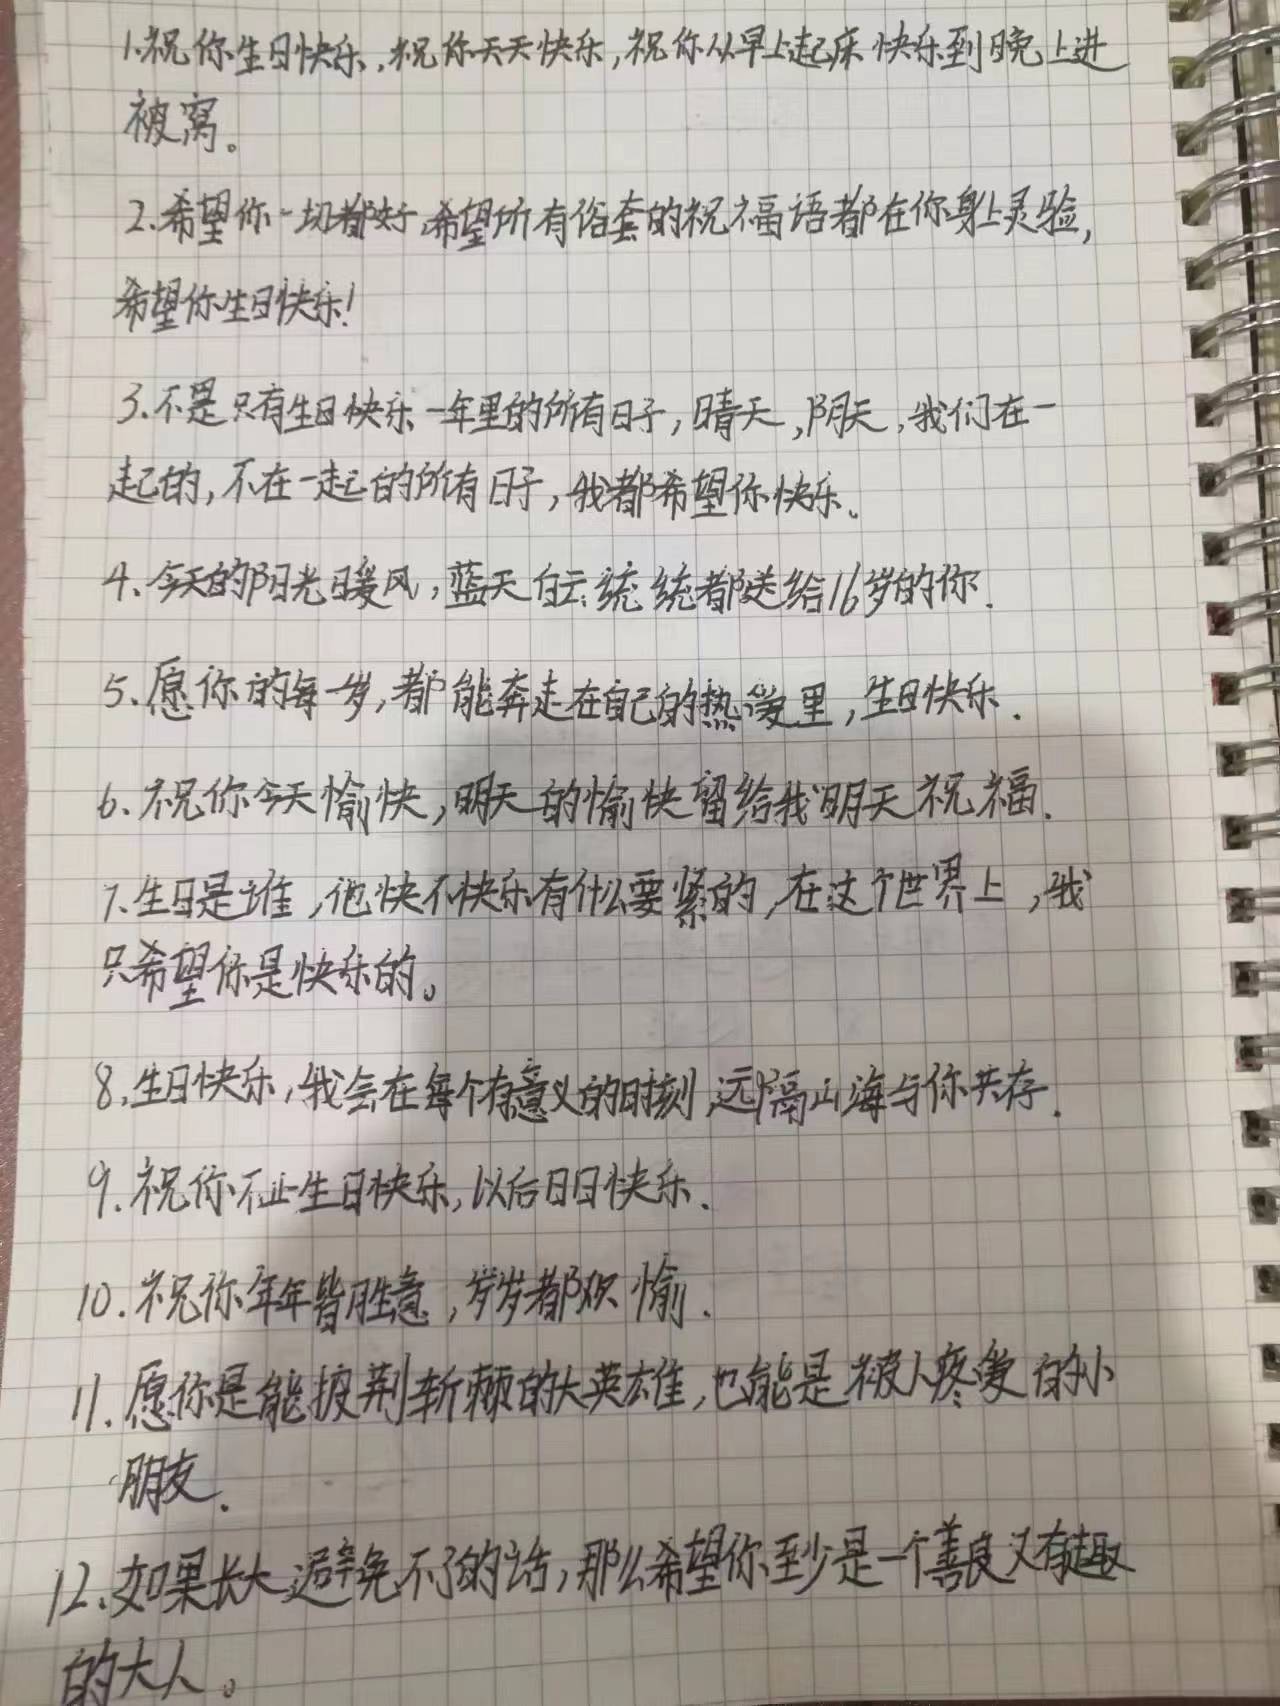 1.祝你生日快乐,祝你天天快乐,祝你从早上起床快乐到晚上进
被窝。
2.希望你一切都好,希望所有俗套的祝福语都在你身上灵验,
希望你生日快乐!
3.不是只有生日快乐 一年里的所有日子,晴天,阴天,我们在一
起的,不在一起的所有日子,我都希望你快乐。
4.今天的阳光暖风,蓝天白云统统都送给16岁的你.
5.愿你的每一岁,都能奔走在自己的热爱里,生日快乐.
6.祝你今天愉快,明天的愉快留给我明天祝福.
7.生日是谁,他快不快乐有什么要紧的,在这个世界上,我
只希望你是快乐的。
8.生日快乐,我会在每个有意义的时刻,远隔山海与你共存.
9.祝你不止生日快乐,以后日日快乐.
10.祝你年年皆胜意,岁岁都欢愉.
11.愿你是能披荆斩棘的大英雄,也能是被人疼爱的小
朋友.
12.如果长大避免不了的话,那么希望你至少是一个善良又有趣
的大人。